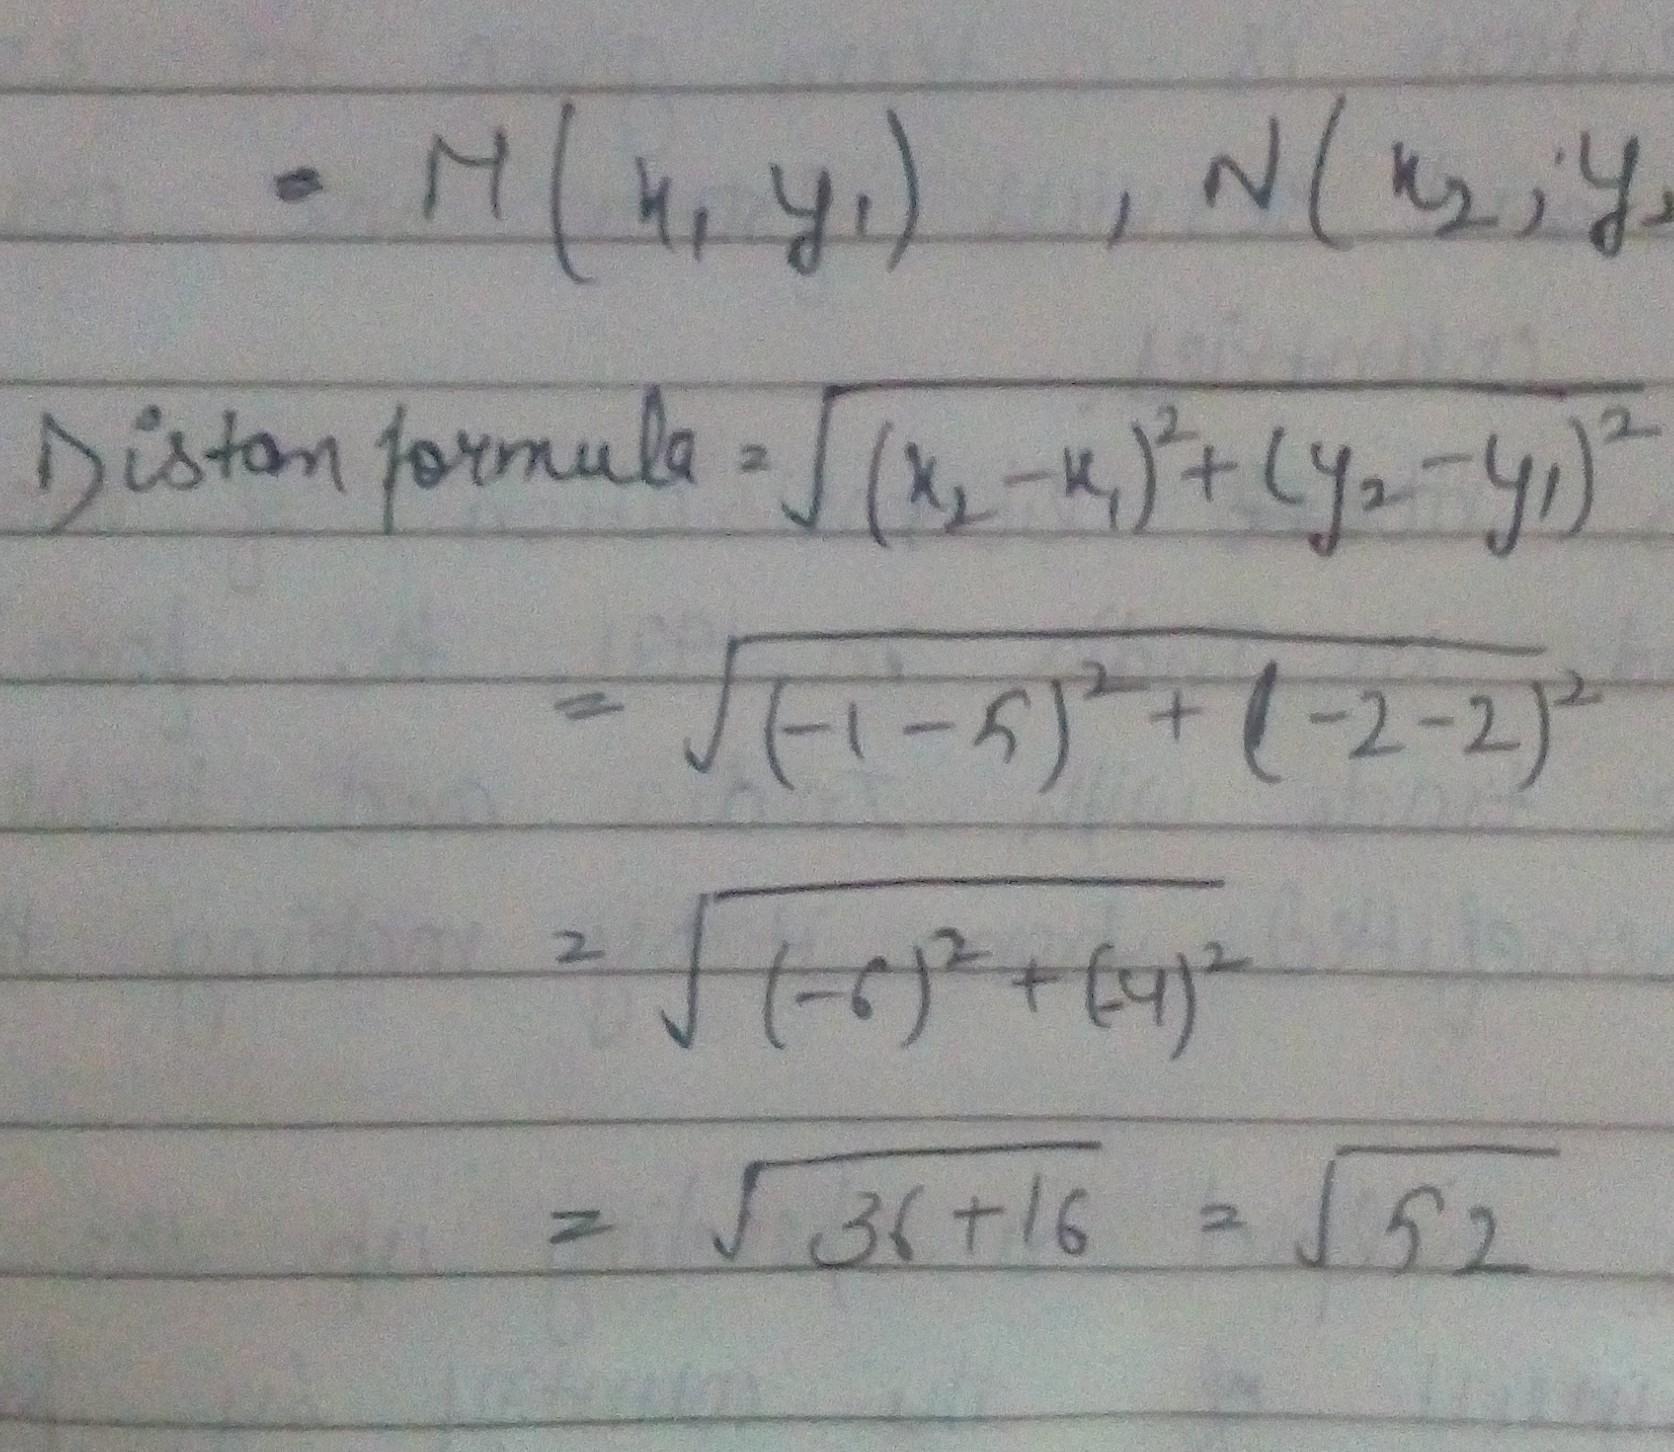 - M(x₁ y₁) , N(x₂, y₂
Distan formula = √(x₂-x₁)²+(y₂-y₁)²
= √(-1-5)²+(-2-2)²
= √(-6)²+(-4)²
= √36+16 = √52